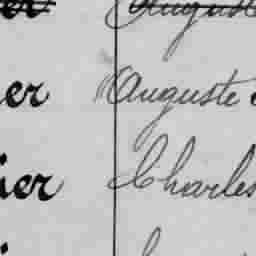 er Auguste
er Auguste
ier Charles